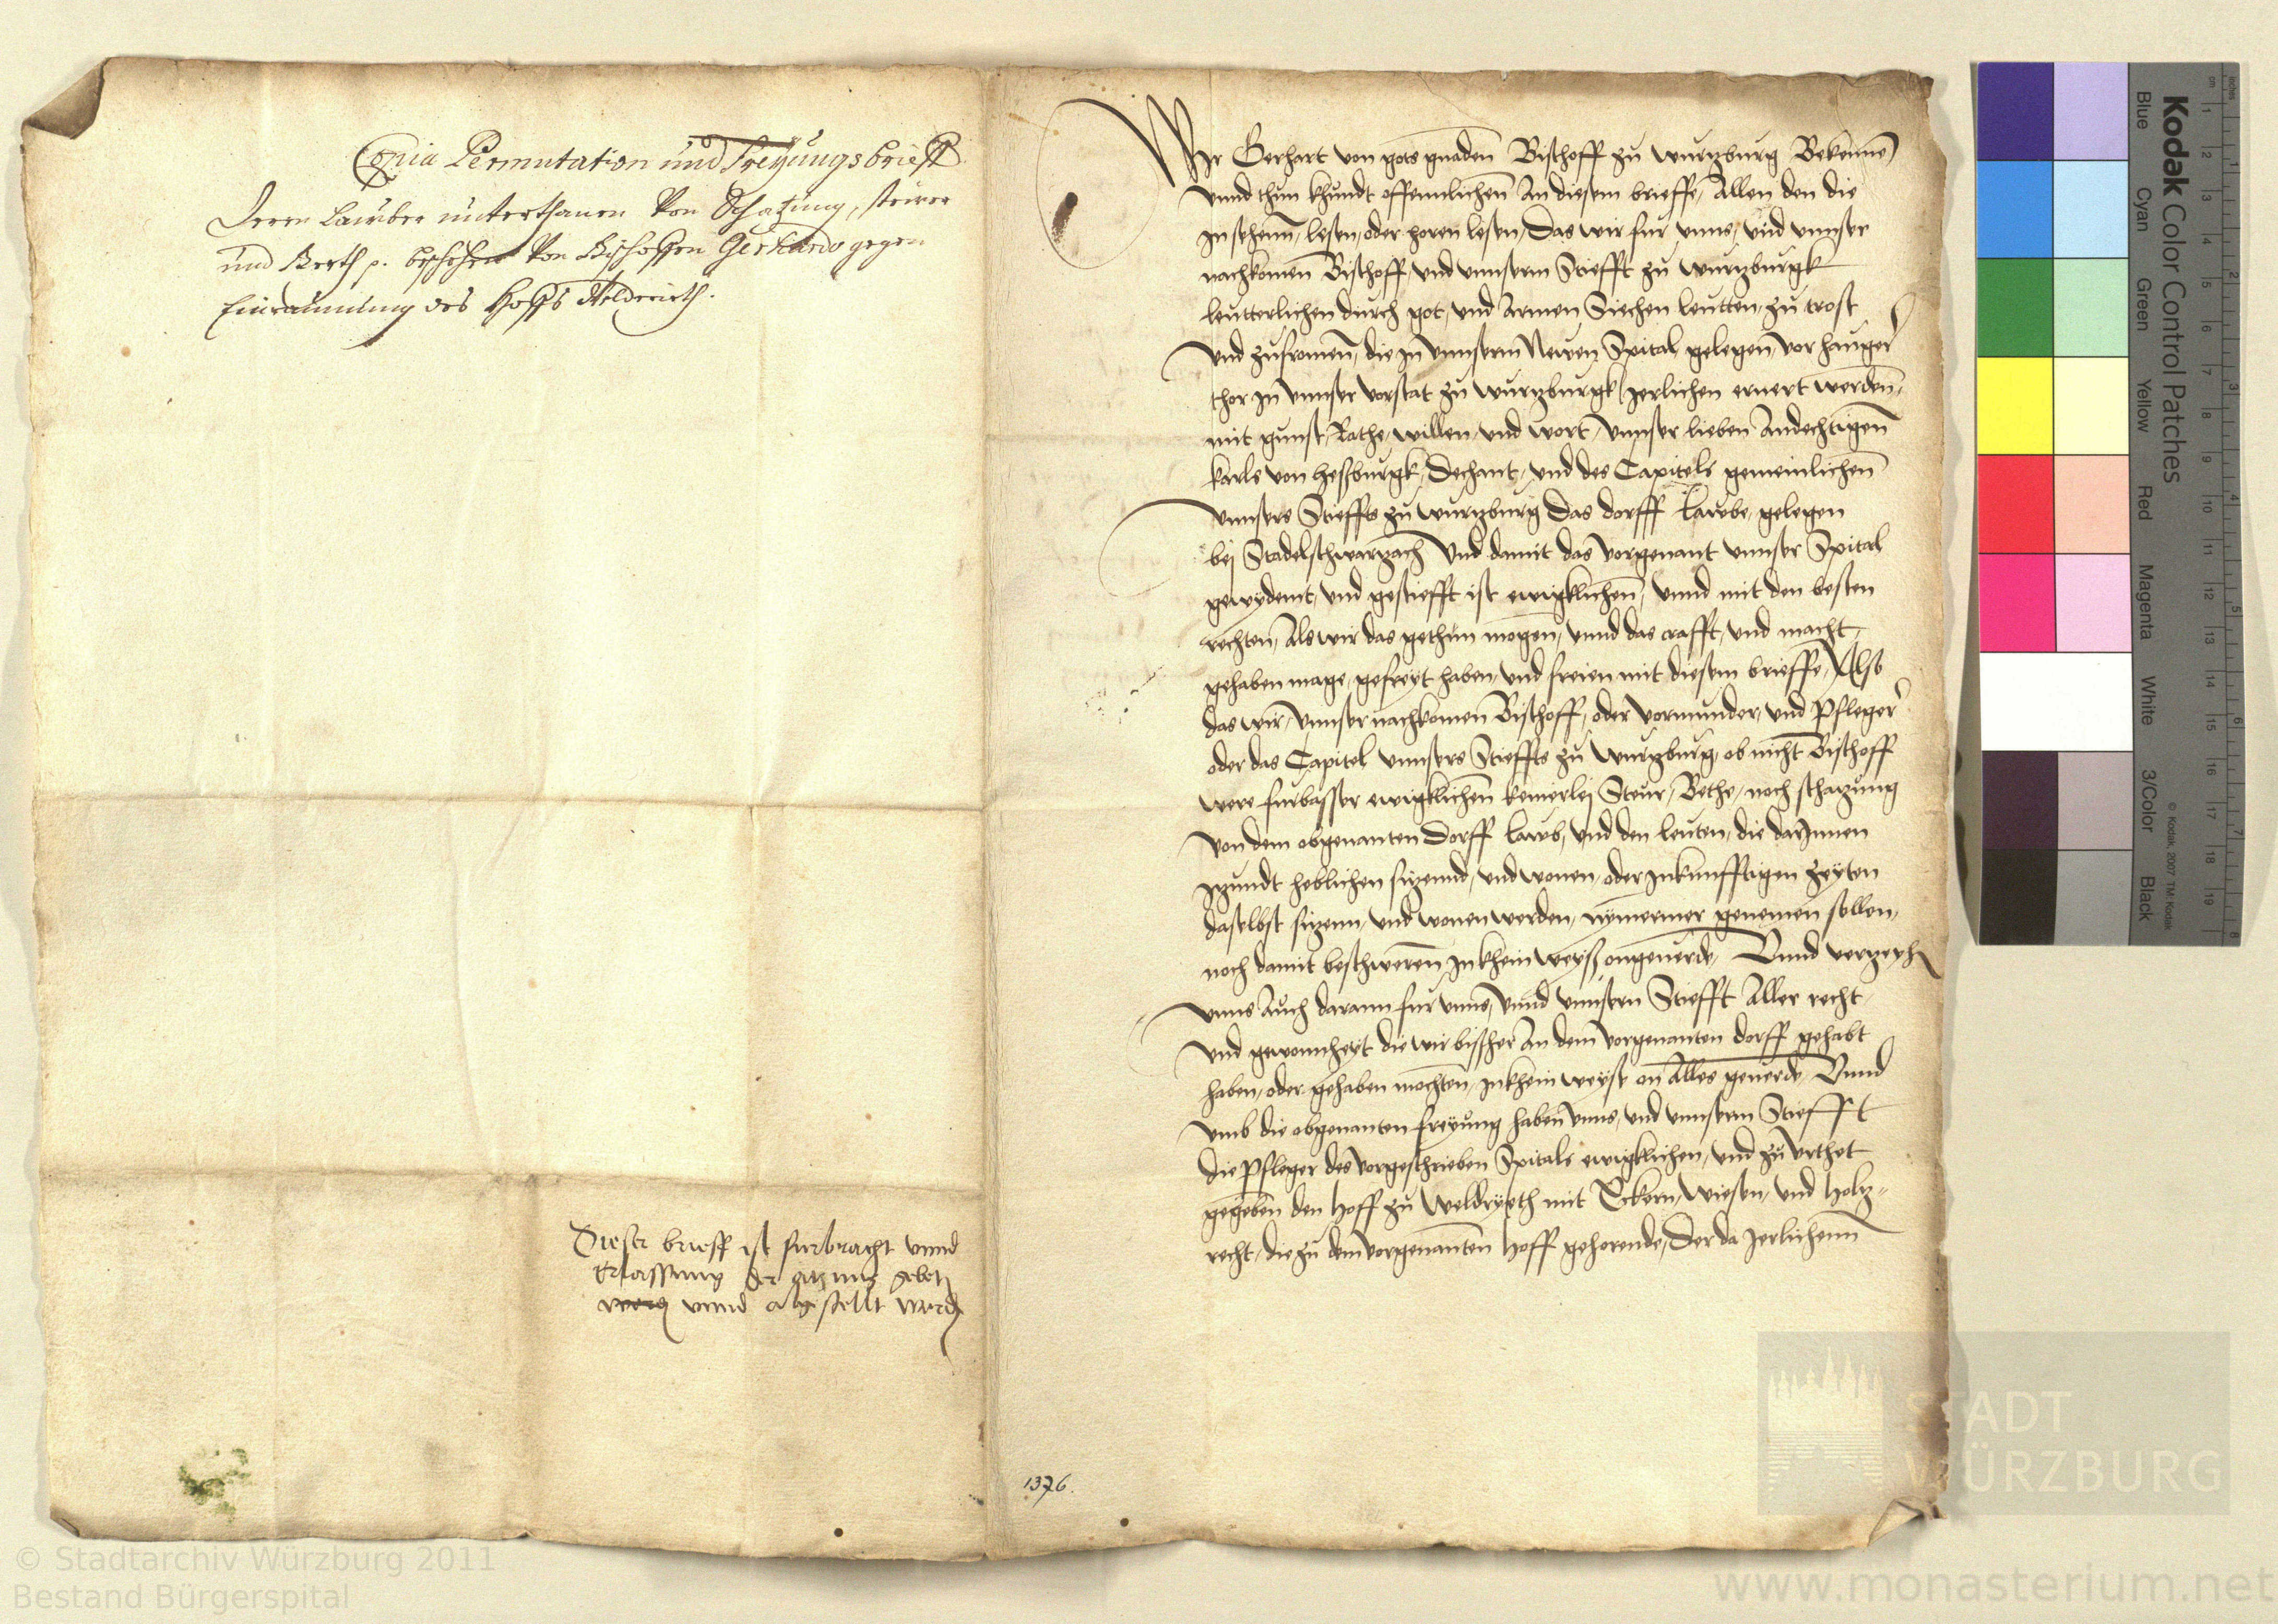 Copia Permutation und Freyungsbrieff
Deren Lauber unterthanen Von Schatzung, steuer
und Beeth p. beschehen Von Bischoffen Gerhardo gegen
Einraumung des Hoffs Weldrieth.
Dieser brieff ist furbracht vnnd
der gebet
vnnd abgestellt werd
1376.
Wir Gerhart von gots gnaden Bischoff zu wurtzburg Bekennen
vnnd thun khundt offennlichen An diesem brieffe, Allen den die
In sehenn, lesen, oder horen lesen, Das wir fur vnns, vnd vnnser
nachkomen Bischoff, vnd vnnserm Stiefft zu wurtzburgk
leutterlichen durch got, vnd Armen Siechen leutten, zu trost
vnd zufromen, die In vnnserm Newen Spital gelegen, vor hauger
thor In vnnser vorstat zu wurtzburgk Jerlichen ernert werden,
mit gunst, Rathe, willen, vnd wort, vnnser lieben Andechtigen
karls von heßburgk, Dechant, vnd des Capitels gemeinlichen
vnnsers Stieffts zu wurtzburg Das dorff Lawbe, gelegen
bej Stadelschwarzach Vnd damit das vorgenant vnnser Spital
gewydemt, vnd gestiefft ist ewigklichen, vnnd mit den besten
rechten, Als wir das gethun mogen, vnnd das crafft, vnd macht,
gehaben mage, gefreyt haben, vnd freien mit diesem brieffe, Also
das wir, vnnser nachkomen Bischoff, oder vormunder, vnd Pfleger
oder das Capitel vnnsers Stieffts zu Wurtzburg, ob nicht Bischoff
were furbasser ewigklichen keinerlej Steur, Bethe, noch schatzung
von dem obgenanten Dorff Lawb, vnd den leuten, die darJnnen
Jtzundt heblichen sitzennd, vnd wonen, oder Inkunfftigen zeyten
daselbst sitzenn, vnd wonen werden, nymermer genemen sollen,
noch damit beschweren, In khein weyß ongeuerde, Vnnd verzeyh
vnns Auch darann fur vnns, vnnd vnnsern Stiefft Aller recht,
vnd gewonheyt die wir bißher An dem vorgenanten dorff gehabt
haben, oder gehaben mochten, In khein weyse on Alles geuerde, Vnnd
vmb die obgenanten freyung haben vnns, vnd vnnserm Stiefft
die Pfleger des vorgeschrieben Spitals ewigklichen, vnd zu vrthet
gegeben den Hoff zu Weldryeth mit Eckern, Wiesen, vnd Holtz-
recht, die zu dem vorgenanten Hoff gehorende, Der da Jerlichenn
Kodak Color Control Patches
© Kodak, 2007 TM: Kodak
Blue Cyan Green Yellow Red Magenta White 3/Color Black
inches
cm
1 2 3 4 5 6 7 8 9 10 11 12 13 14 15 16 17 18 19
1 2 3 4 5 6 7 8
STADT
WÜRZBURG
© Stadtarchiv Würzburg 2011
Bestand Bürgerspital
www.monasterium.net